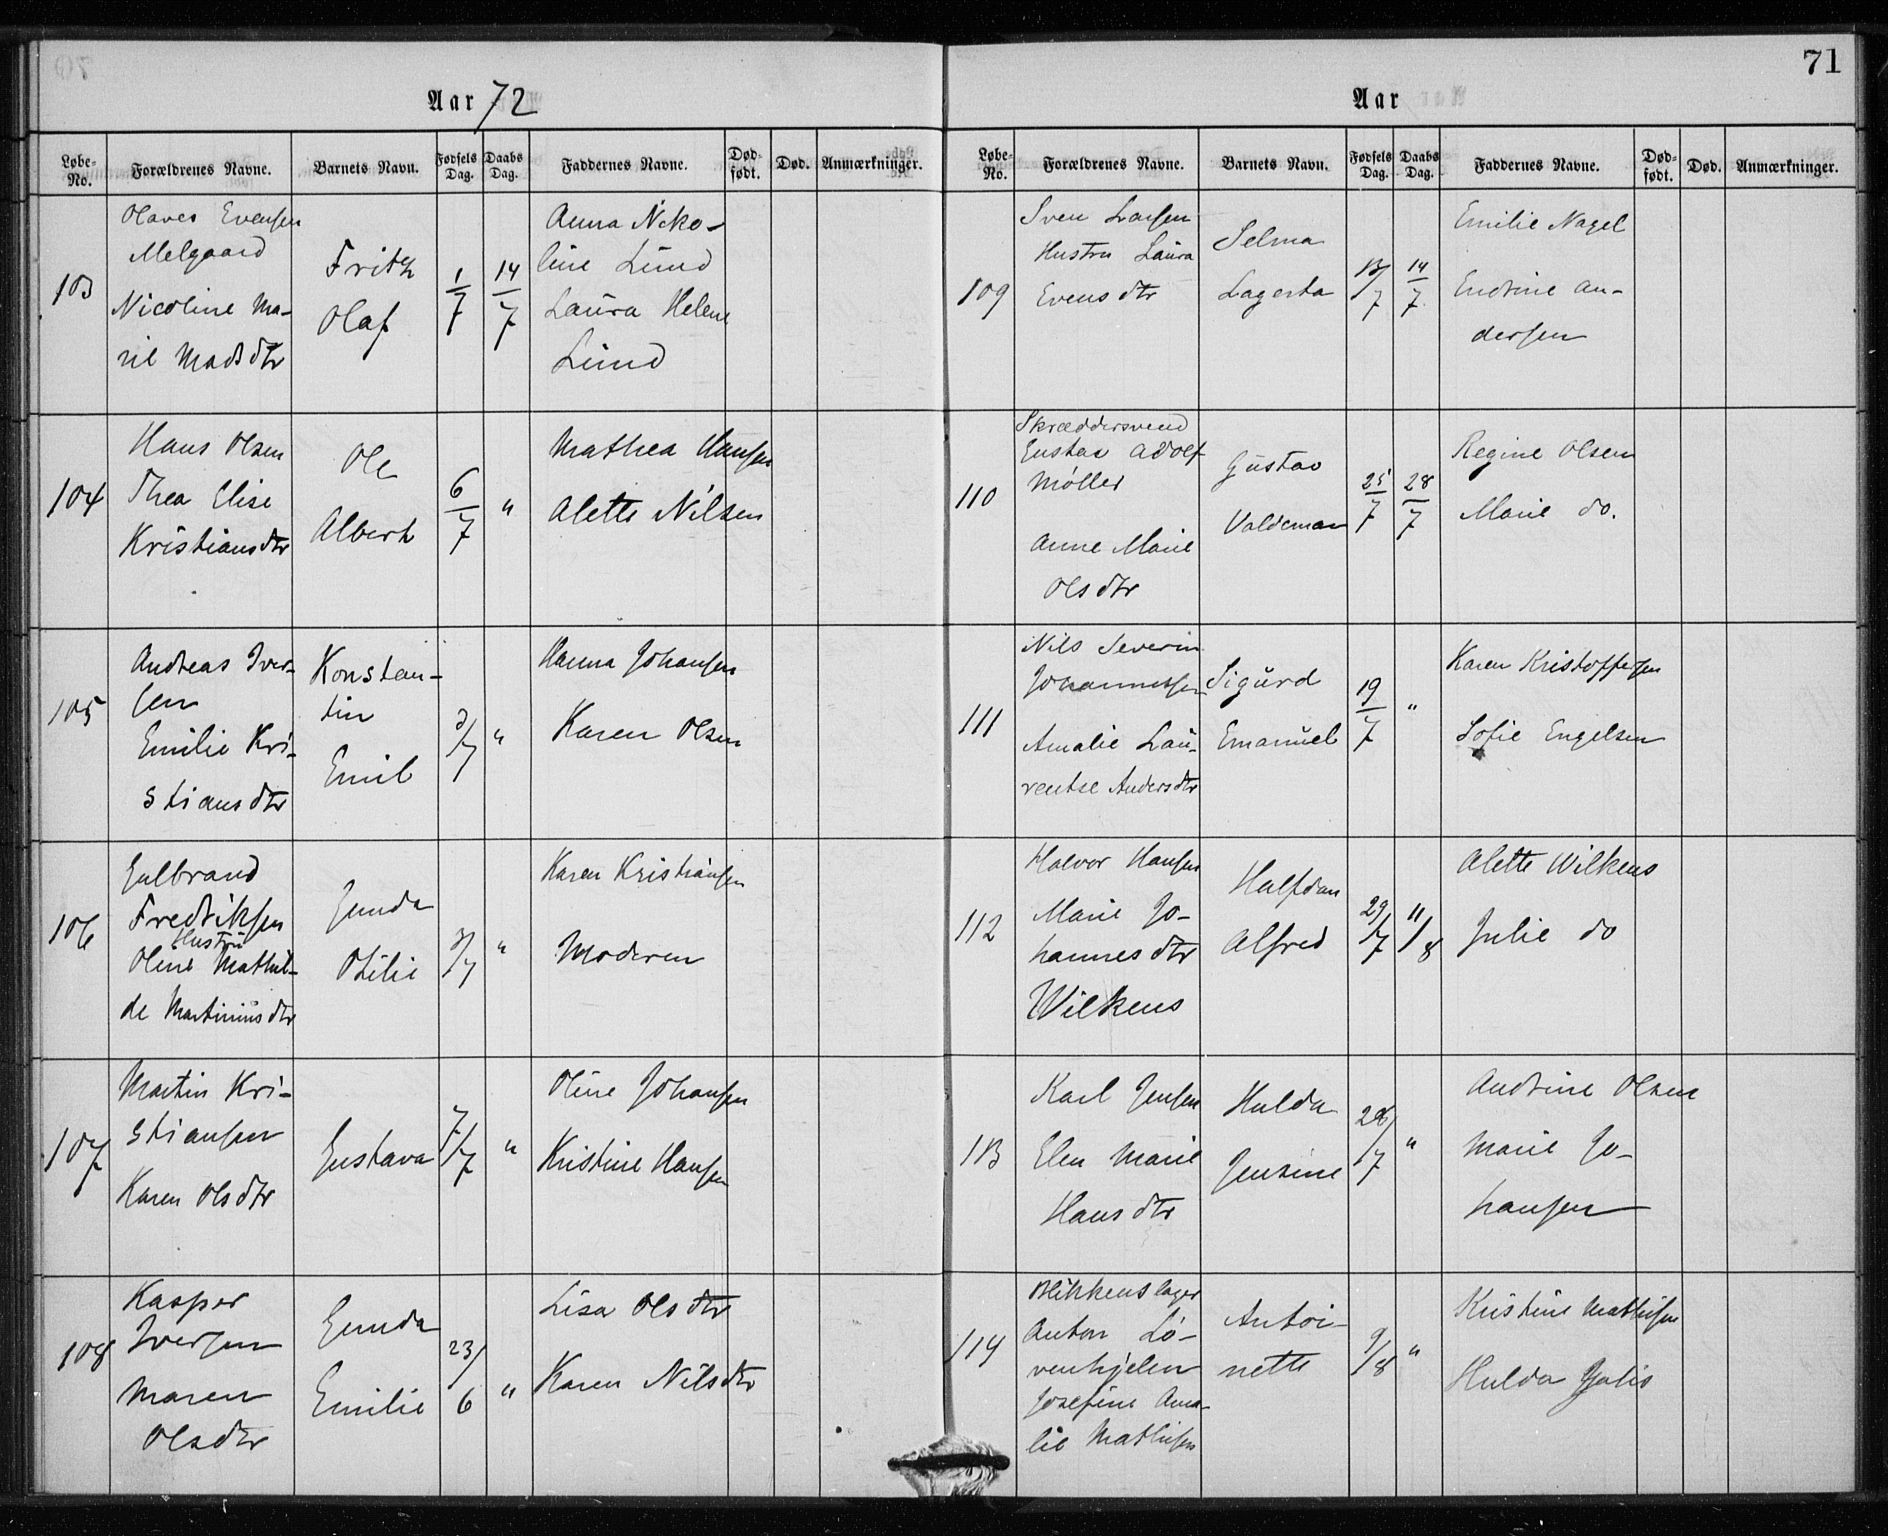 Aar 72
Løbe-No. Forældrenes Navne. Barnets Navn. Fødsels Dag. Daabs Dag. Faddernes Navne. Død-født. Død. Anmærkninger.
103
Olaves Evensen
Melgaard
Nicoline Ma-
ril Madsdtr
Fritz
Olaf
1/7
14/7
Anna Niko-
line Lund
Laura Helene
Lund
104
Hans Olsen
Thea Elise
Kristiansdtr
Ole
Albert
6/7
"
Mathea Hansen
Alette Nilsen
105
Andreas Iver-
sen
Emilie Kri-
stiansdtr
Konstan-
tin
Emil
3/7
"
Hanna Johansen
Karen Olsen
106
Gulbrand
Fredriksen
Hustru
Oline Mathil-
de Martiniusdtr
Gunda
Otilie
3/7
"
Karen Kristiansen
Moderen
107
Martin Kri-
stiansen
Karen Olsdtr
Gustava
7/7
"
Oline Johansen
Kristine Hansen
108
Kasper
Iversen
Maren
Olsdtr
Gunda
Emilie
23/6
"
Lisa Olsdtr
Karen Nilsdtr
71
Aar
Løbe-No. Forældrenes Navne. Barnets Navn. Fødsels Dag. Daabs Dag. Faddernes Navne. Død-født. Død. Anmærkninger.
109
Sven Larsen
Hustru Laura
Evensdtr
Selma
Lagerta
13/7
14/7
Emilie Nagel
Endrine An-
dersen
110
Skræddersvend
Gustav Adolf
Møller
Anne Marie
Olsdtr
Gustav
Valdemar
25/7
28/7
Regine Olsen
Marie do.
111
Nils Severin
Johannessen
Amalie Lau-
rentse Andersdtr
Sigurd
Emanuel
19/7
"
Karen Kristoffersen
Sofie Engelsen
112
Halvor Hansen
Marie Jo-
hannesdtr
Wilkens
Halfdan
Alfred
29/7
11/8
Alette Wilkens
Julie do
113
Karl Jensen
Elen Marie
Hansdtr
Hulda
Jensine
28/7
"
Andrine Olsen
Marie Jo-
hansen
114
Blikkenslager
Anton Lø-
venhjelm
Josefine Ama-
lie Mathisen
Antoi-
nette
9/8
"
Kristine Mathisen
Hulda